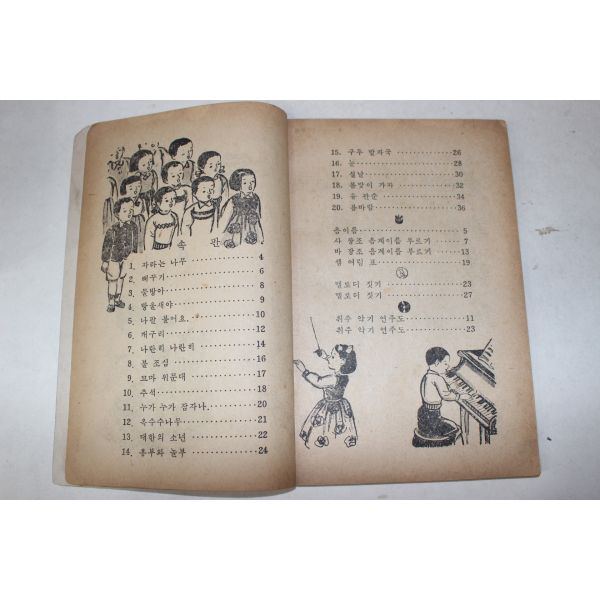 속 판
1. 자라는 나무 ················ 4
2. 뻐꾸기 ···················· 6
3. 물방아 ···················· 8
4. 방울새야 ·················· 9
5. 나팔 불어요. ·············· 10
6. 개구리 ···················· 12
7. 나란히 나란히 ············ 14
8. 불 조심 ···················· 16
9. 꼬마 위문대 ·············· 17
10. 추석 ······················ 18
11. 누가 누가 잠자나. ········ 20
12. 옥수수나무 ················ 21
13. 대한의 소년 ·············· 22
14. 흥부와 놀부 ·············· 24
15. 구두 발자국 ·············· 26
16. 눈 ························ 28
17. 설날 ······················ 30
18. 봄맞이 가자 ·············· 32
19. 유 관순 ···················· 34
20. 봄바람 ···················· 36
음이름 ························ 5
사 장조 음계이름 부르기 ······ 7
바 장조 음계이름 부르기 ······ 13
셈 여림 표 ···················· 19
멜로디 짓기 ·················· 23
멜로디 짓기 ·················· 27
취주 악기 연주도 ············ 11
취주 악기 연주도 ············ 23